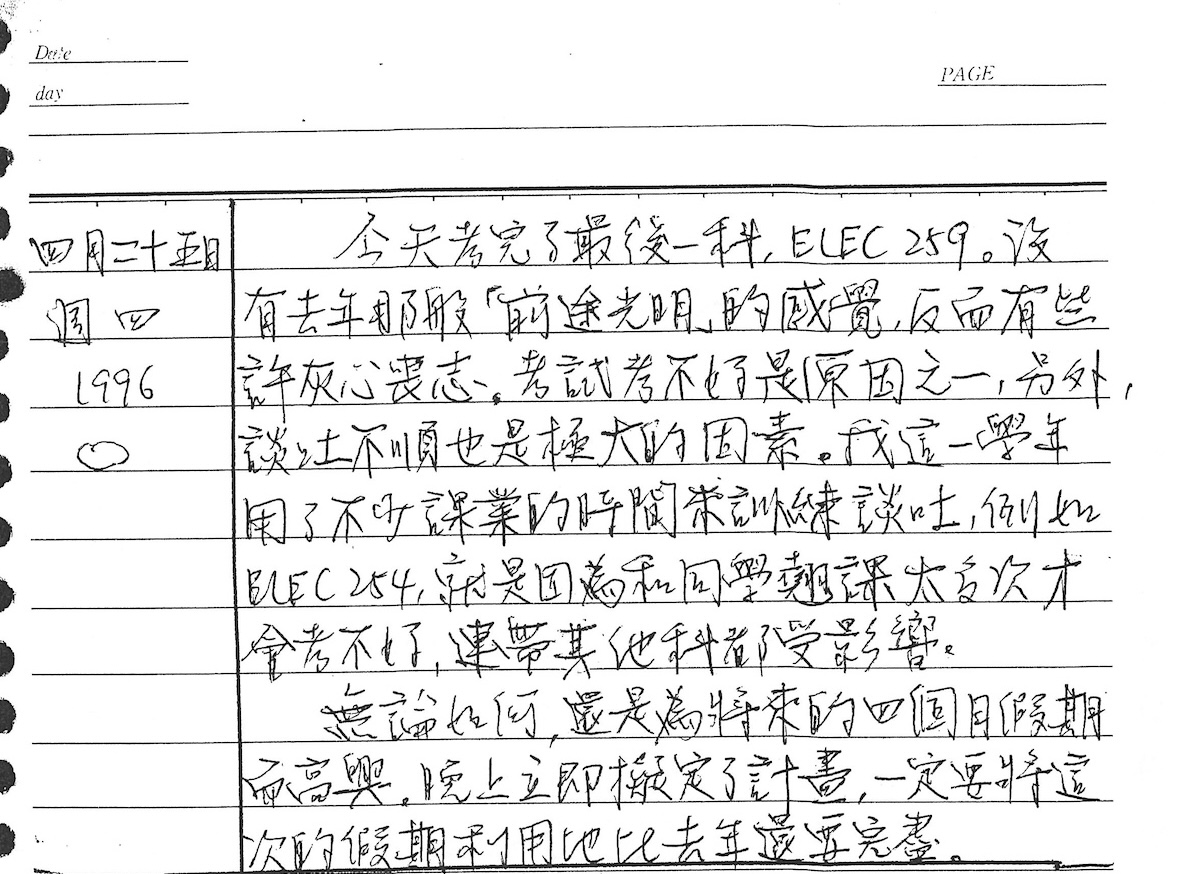 Date
day
PAGE
四月二十五日
週四
1996
今天考完了最後一科, ELEC 259。沒
有去年那般「前途光明」的感覺,反而有些
許灰心喪志。考試考不好是原因之一,另外,
談吐不順也是極大的因素。我這一學年
用了不少課業的時間來訓練談吐,例如
ELEC 254,就是因為和同學翹課太多次才
會考不好,連帶其他科都受影響。
無論如何,還是為將來的四個月假期
而高興。晚上立即擬定了計畫,一定要將這
次的假期利用地比去年還要完盡。